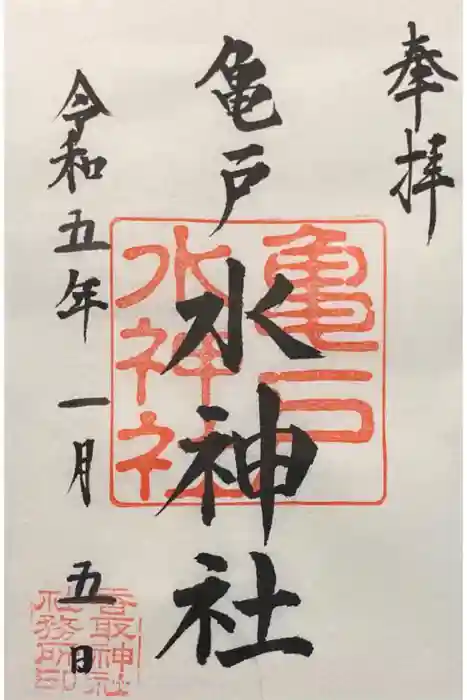 奉拝
亀戸水神社
亀戸
水神社
令和五年一月五日
香取神社
社務所印